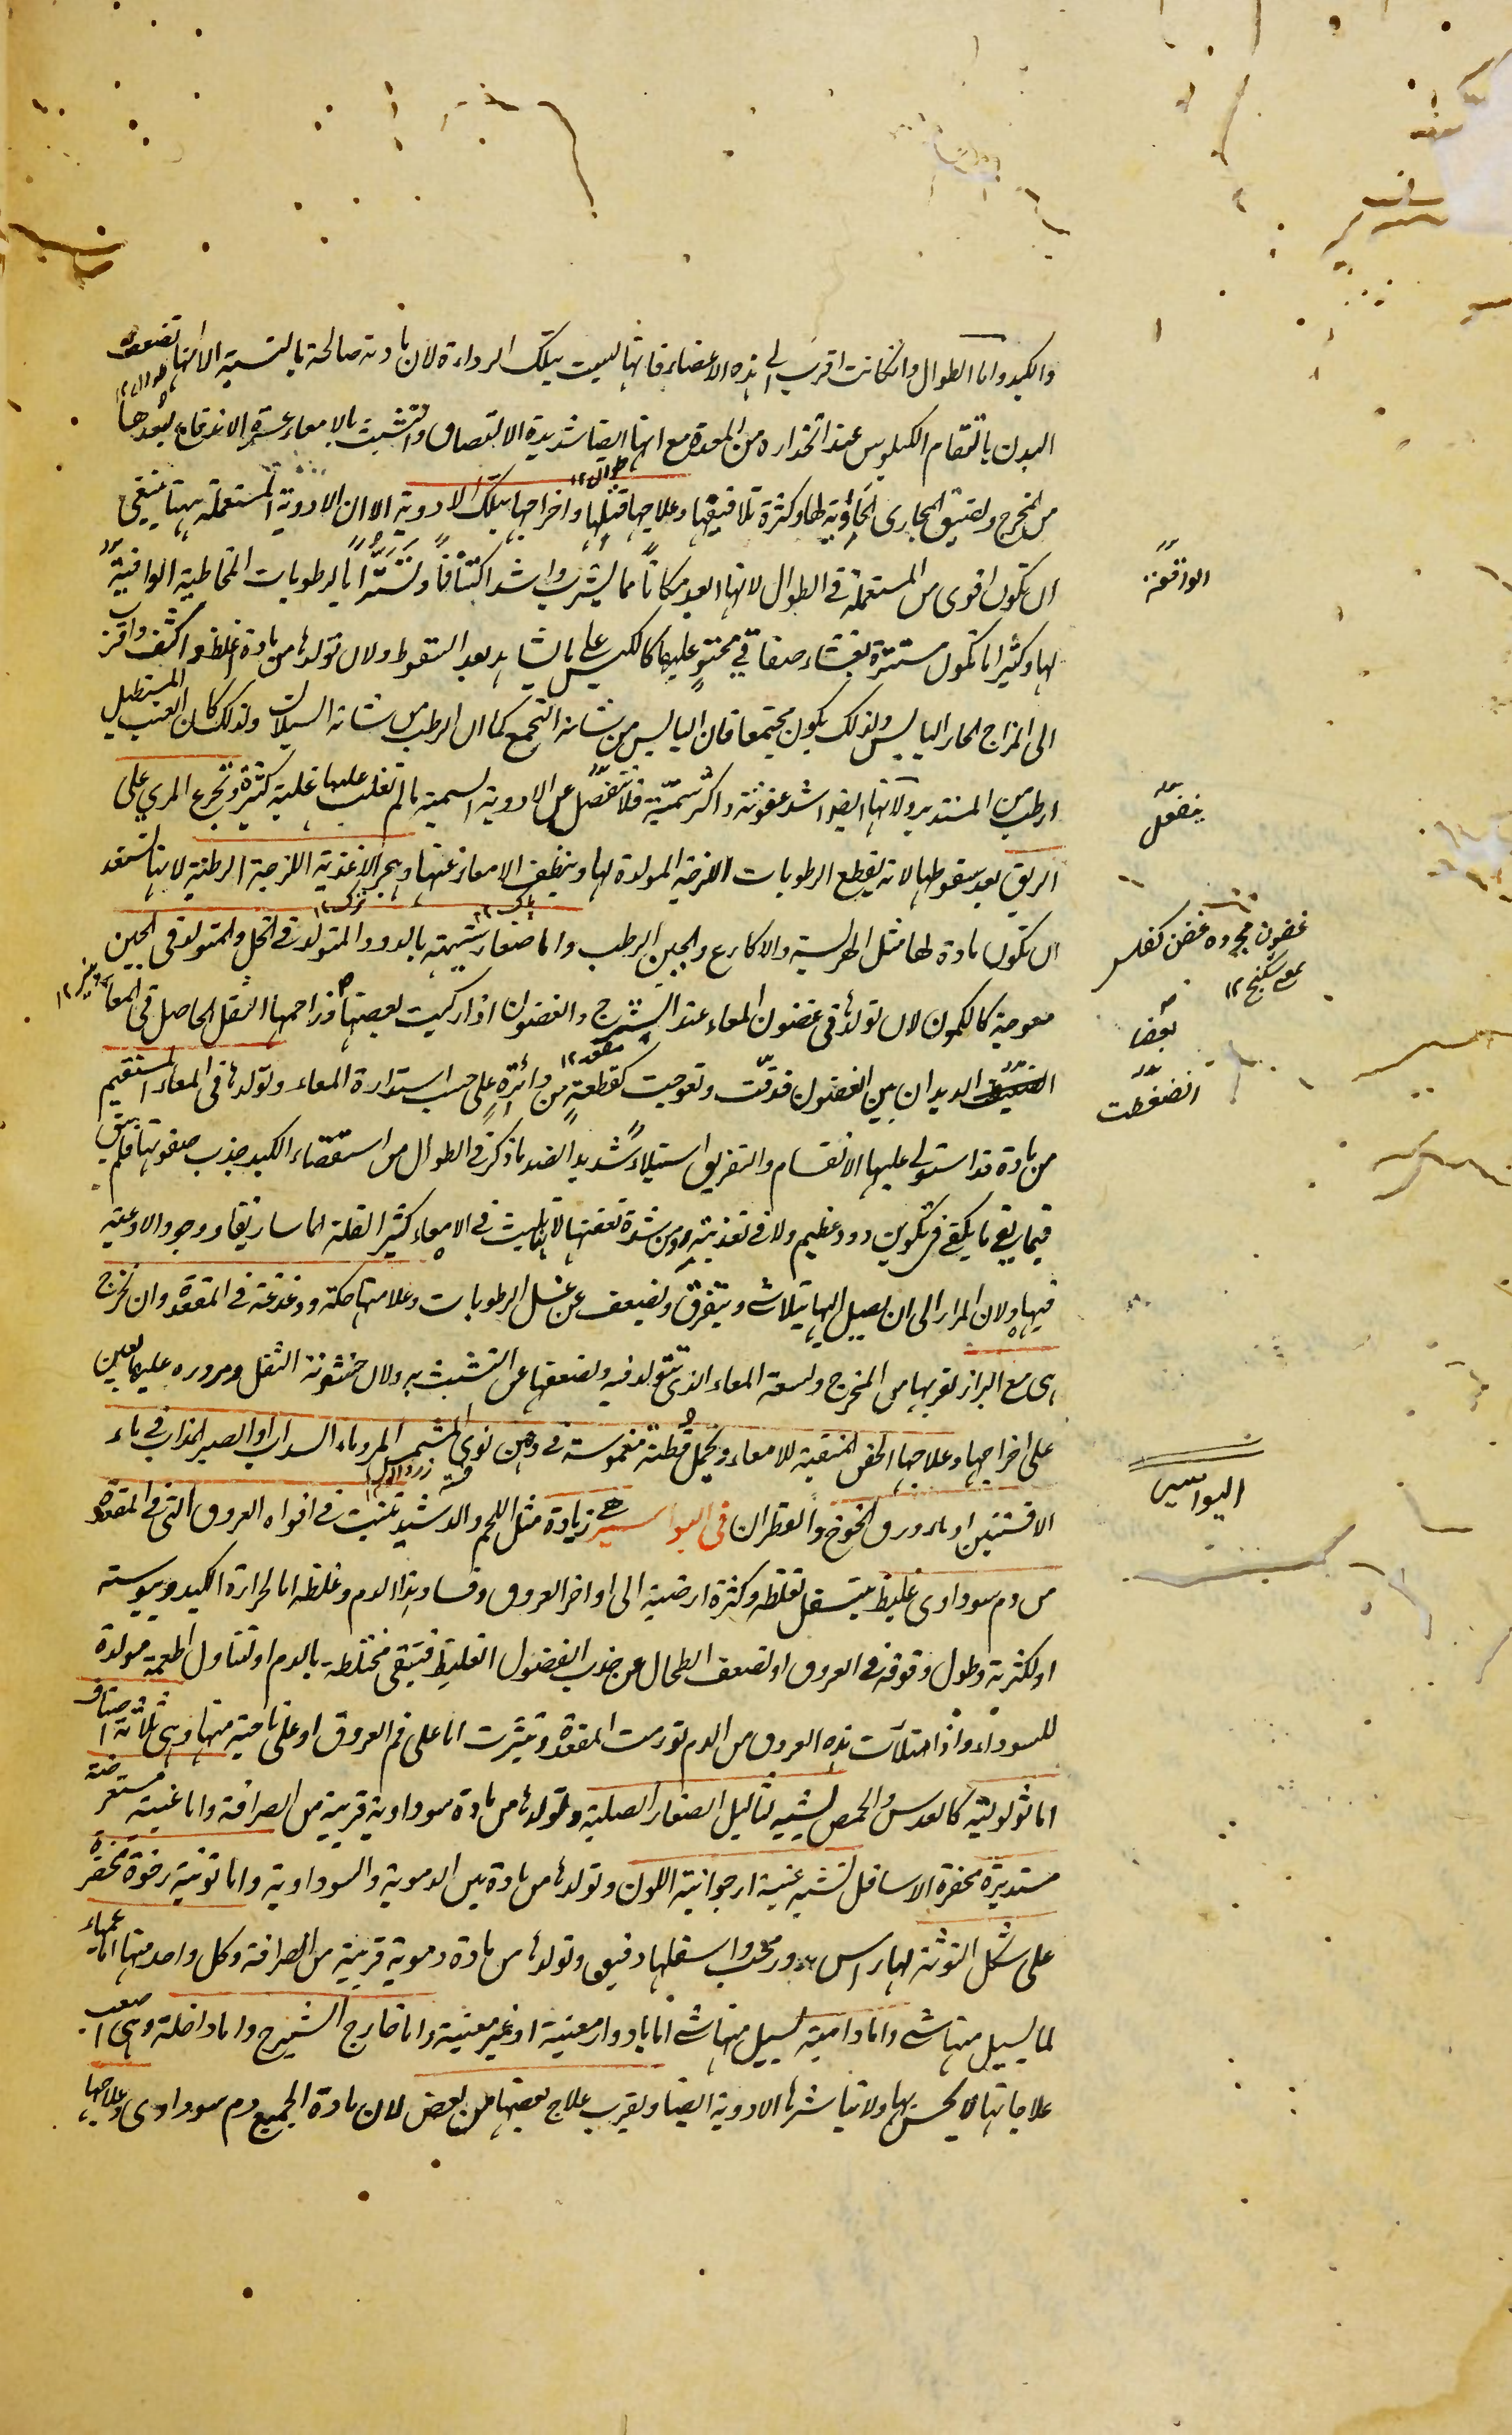 والكبد واما الطوال وانكانت اقرب الى هذه الاعضاء فانها ليست بتلك الرداءة لان مادته صالحة بالنسبة الا انها تضعف
البدن بالتقام الكيلوس عند انحداره من المعدة مع انها ايضا شديدة الالتصاق والتشبث بالامعاء عسرة الاندفاع لبعدها
من المخرج ولضيق المجارى الحاوية لها وكثرة تلافيفها وعلاجها قتلها واخراجها بتلك الادوية الا ان الادوية المستعملة ههنا ينبغى
ان تكون اقوى من المستعملة فى الطوال لانها ابعد مكانا مما يشرب واشد اكتنافا وتسترا بالرطوبات المخاطية الواقية
لها وكثيرا ما تكون مستترة بغشاء صفاقى محتو عليها كالكيس على ما يشاهد بعد السقوط ولان تولدها من مادة اغلظ واكثف واقرب
الى المزاج الحار اليابس ولذلك يكون مجتمعا فان اليابس من شانه التجمع كما ان الرطب من شانه السيلان ولذلك كان العنب المستطيل
ارطب من المستدير ولانها ايضا اشد عفونة واكثر سمية فلا تنفصل عن الادوية السمية ما لم تغلب عليها غلبة كثيرة وتجرع المرى على
الريق بعد سقوطها لانه يقطع الرطوبات اللزجة المولدة لها وينظف الامعاء عنها وهجر الاغذية اللزجة الرطبة لانها تستعد
ان تكون مادة لها مثل الهريسة والاكارع والجبن الرطب واما صغار شبيهة بالدود المتولد فى الخل والمتولد فى الجبن
معوجة كالكمون لان تولدها فى غضون المعاء عند الشرج والغضون اذا ركبت بعضها وزاحمها الثفل الحاصل فى المعاء
الديدان بين الغضون فدقت وتعوجت كقطعة من دائرة على حسب استدارة المعاء وتولدها فى المعاء المستقيم
من مادة قد استولى عليها الانقسام والتفريق استيلاء شديدا لضد ما ذكر فى الطوال من استقصاء الكبد جذب صفوتها فلم يبق
فيما بقى ما يكفى فى تكوين دود عظيم ولا فى تغذيته ومن شدة تعفنها لانها تلبث فى الامعاء كثيرا لقلة الماساريقا ووجود الاوعية
فيها ولان المرار الى ان يصل اليها يتلاشى ويتفرق ويضعف عن غسل الرطوبات وعلامتها حكة ودغدغة فى المقعدة وان تخرج
هى مع البراز لقربها من المخرج ولسعة المعاء الذى تتولد فيه ولضعفها عن التشبث به ولان خشونة الثفل ومروره عليها يعين
على اخراجها وعلاجها الحقن المنقية للامعاء ويحمل قطنة مغموسة فى دهن نوى المشمش المر وماء السداب او الصبر المذاب فى ماء
الافسنتين او ماء ورق الخوخ والقطران فى البواسير هى زيادة مثل اللحم والدشبد تنبت فى افواه العروق التى فى المقعدة
من دم سوداوى غليظ يتسفل لغلظه وكثرة ارضيته الى اواخر العروق وفساد هذا الدم وغلظه اما لحرارة الكبد ويبوسته
او لكثرته وطول وقوفه فى العروق او لضعف الطحال عن جذب الفضول الغليظ فتبقى مختلطة بالدم او لتناول اطعمة مولدة
للسوداء واذا امتلأت هذه العروق من الدم تورمت المقعدة وتبثرت اما على فم العروق او على ناحية منها وهى ثلاثة اصناف
اما ثولولية كالعدس والحمص يشبه الثآليل الصغار الصلبة وتولدها من مادة سوداوية قريبة من الصرافة واما عنبية مستعرضة
مستديرة مخضرة الاسافل تشبه عنبة ارجوانية اللون وتولدها من مادة بين الدموية والسوداوية واما توثية رخوة مخضرة
على شكل التوثة لها راس مدور محدب اسفلها دقيق وتولدها من مادة دموية قريبة من الصرافة وكل واحد منها اما عمياء
لا يسيل منها شى واما دامية يسيل منها شى اما بادوار معينة او غير معينة واما خارج الشرج واما داخلة وهى اصعب
علاجا لانها لا يحس بها ولا تباشرها الادوية ايضا ويقرب علاج بعضها من بعض لان مادة الجميع دم سوداوى وعلاجها
الواقعة
ينفعل
غضون مجرده غضن كفلس
بمعنى شكنج ١٢
بعضا
انضغطت
البواسير